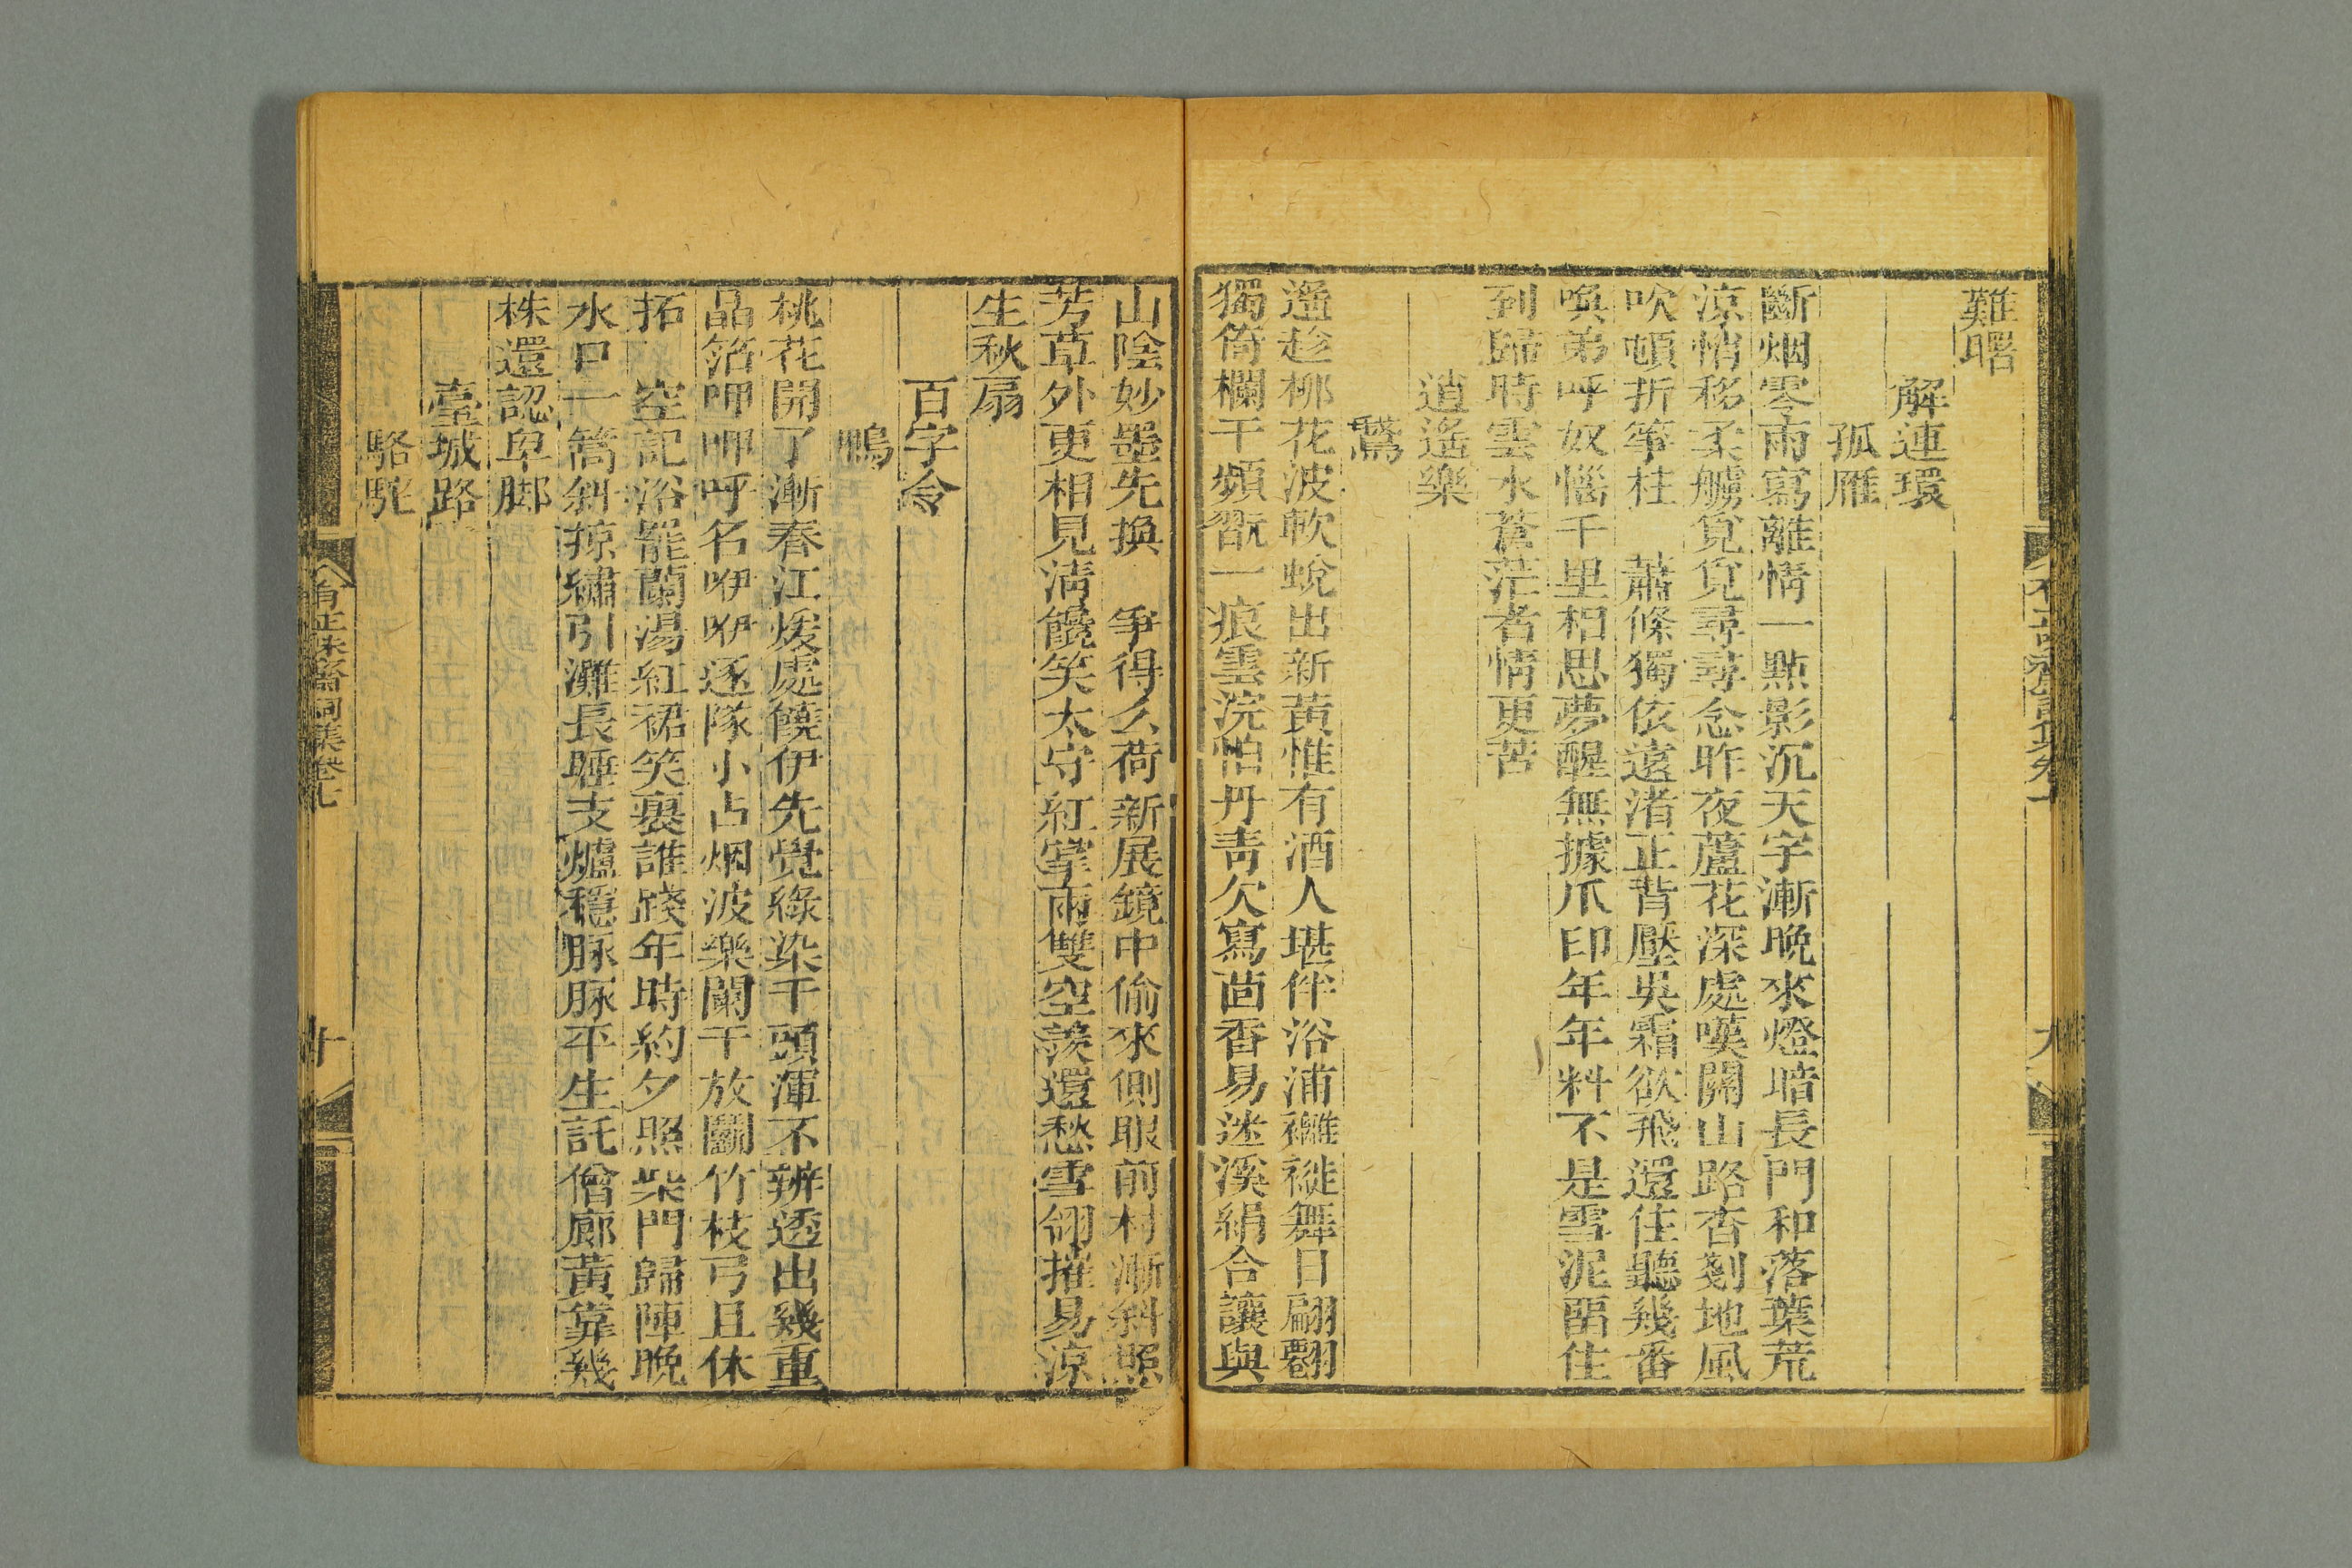 難曙
解連環
孤雁
斷烟零雨寫離情一點影沉天宇漸晚來燈暗長門和落葉荒
涼悄移柔艣覓覓尋尋念昨夜蘆花深處嘆關山路杳剗地風
吹頓折箏柱　蕭條獨依遠渚正背壓吳霜欲飛還住聽幾番
喚弟呼奴惱千里相思夢醒無據爪印年年料不是雪泥留住
到歸時雲水蒼茫者情更苦
逍遙樂
鵞
遙趁柳花波軟蛻出新黃惟有酒人堪伴浴浦褵褷舞日翩翻
獨倚欄干頻翫一痕雲浣怕丹靑欠寫茴香易迷溪絹合讓與
山陰妙墨先換　爭得么荷新展鏡中偷來側眼前村漸斜照
芳草外更相見淸饞笑太守紅掌兩雙空羨還愁雪翎摧易涼
生秋扇
百字令
鴨
桃花開了漸春江煖處饒伊先覺綠染千頭渾不辨透出幾重
晶箔呷呷呼名咿咿逐隊小占烟波樂闌干放鬬竹枝弓且休
拓　空記浴罷蘭湯紅裙笑裹誰踐年時約夕照柴門歸陣晚
水口一篙斜掠繡引灘長睡支爐穩豚豚平生託僧廊黃靠幾
株還認卑脚
臺城路
駱駝
有正味齋詞集卷七
十